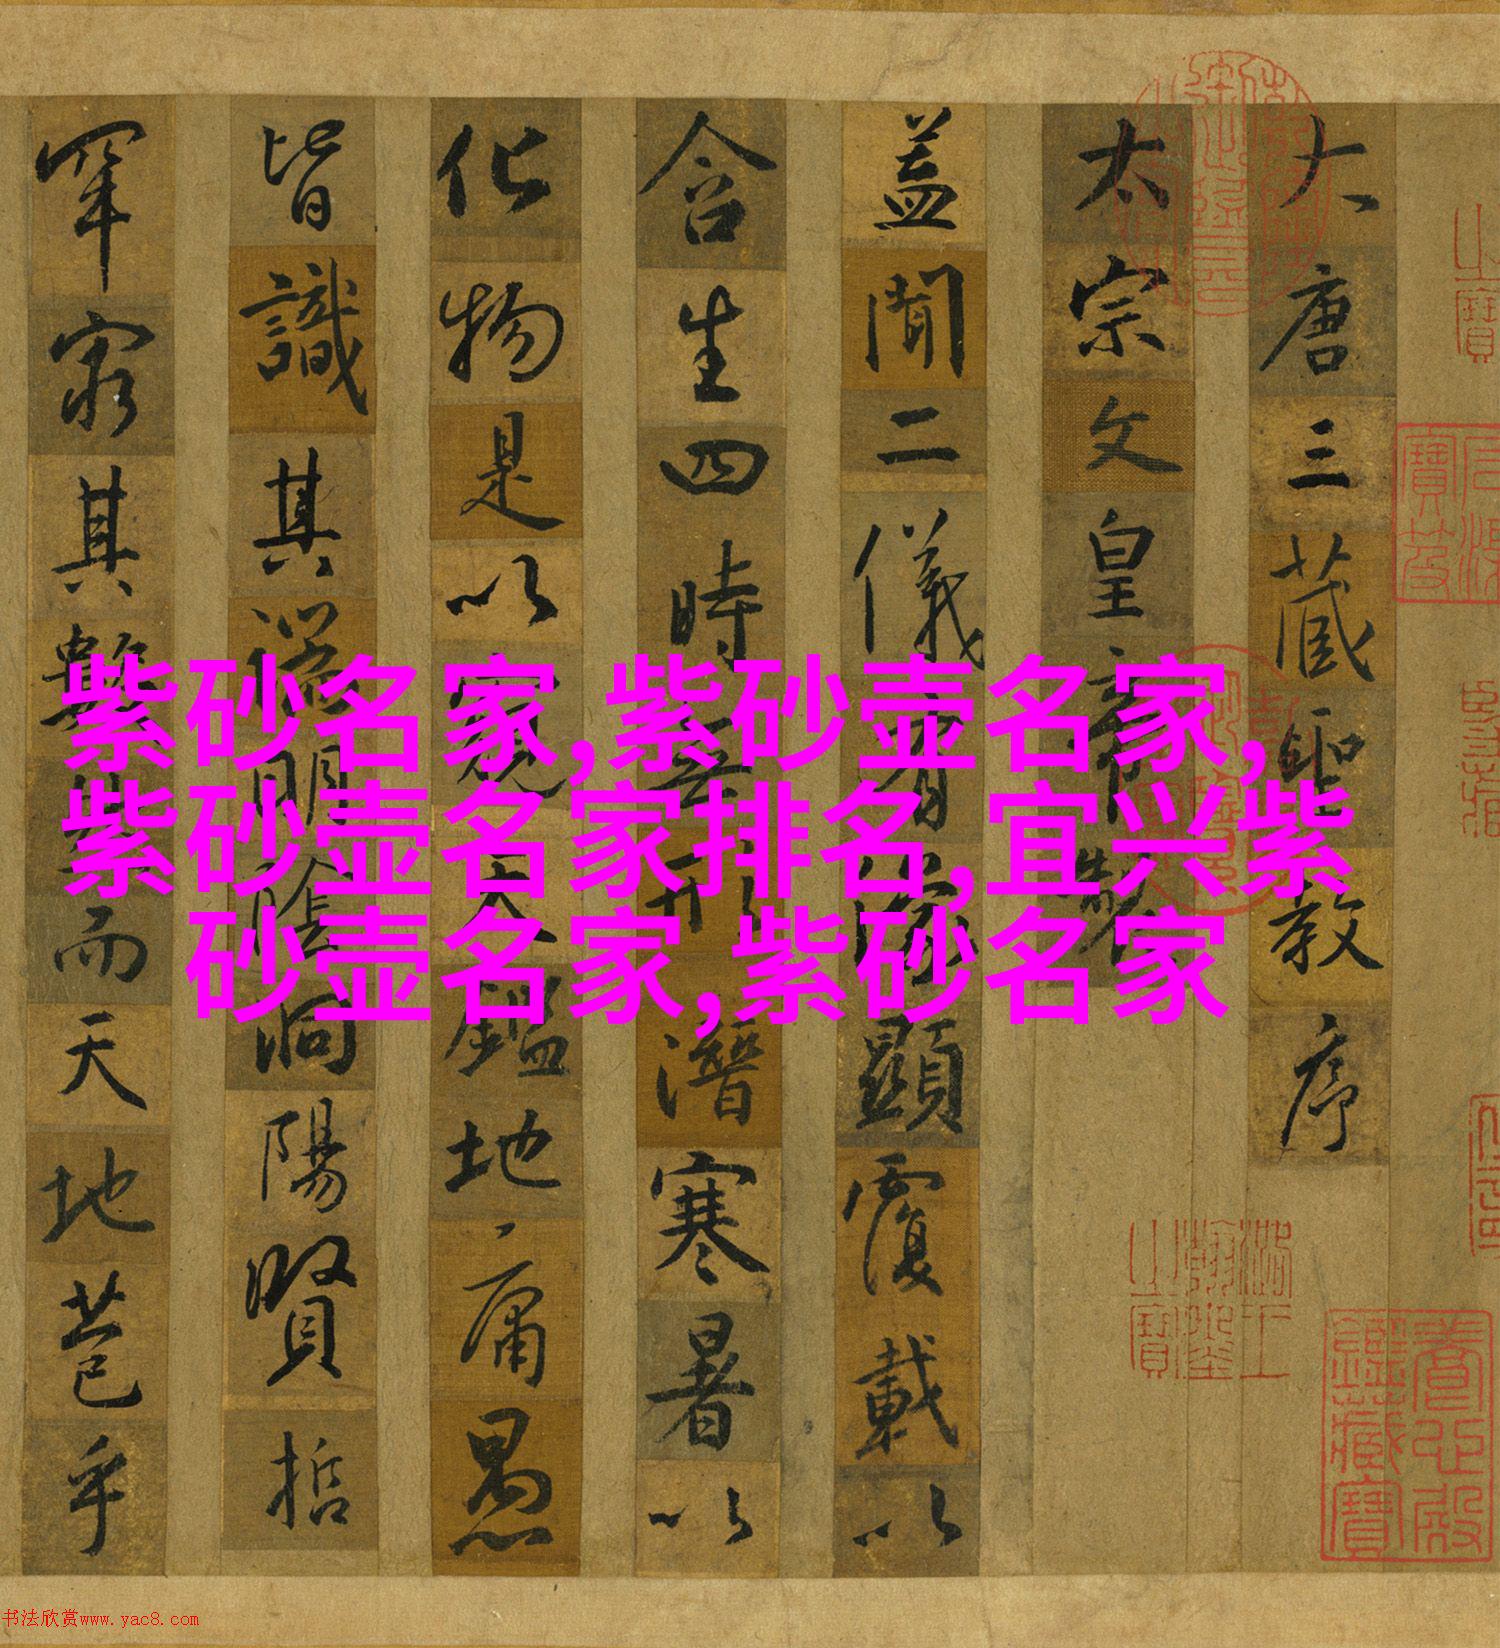 大唐三藏聖教序
太宗文皇帝製
蓋聞二儀有像顯覆載以
含生四時無形潛寒暑以
化物是以窺天鑑地庸愚
皆識其端明陰洞陽賢哲
罕窮其數然而天地苞乎
紫砂名家,紫砂壶名家,
紫砂壶名家排名,宜兴紫
砂壶名家,紫砂名家
養心殿
鑑藏寶
书法欣赏www.yac8.com